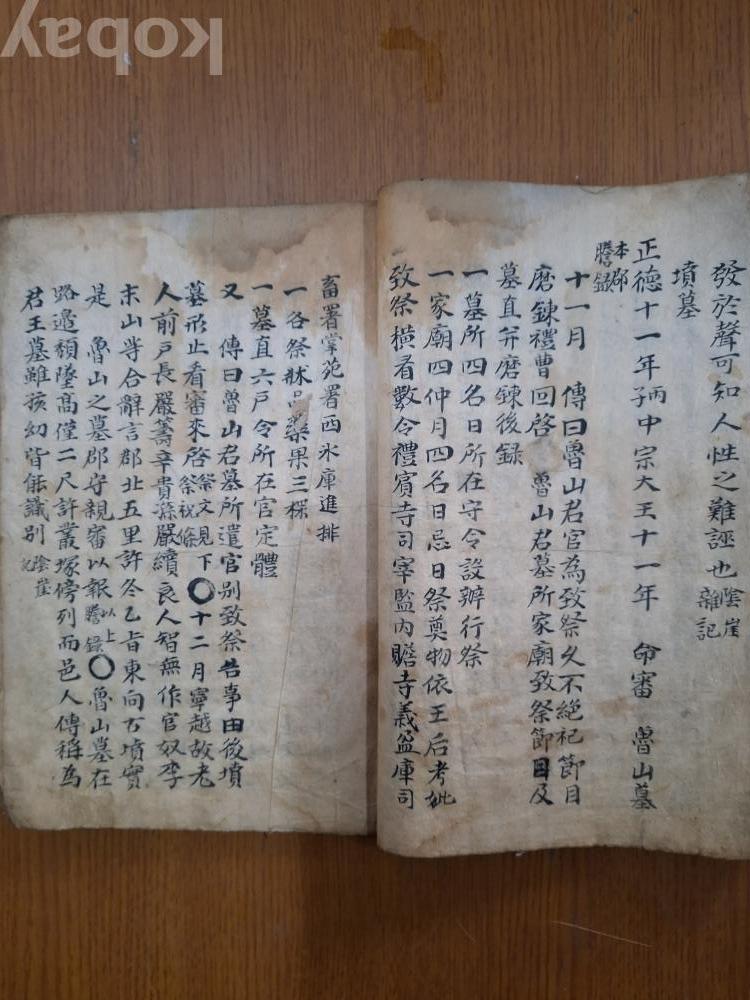 發於聲可知人性之難誣也 陰崖雜記
墳墓
正德十一年丙子中宗大王十一年 命審 魯山墓
本郡謄錄
十一月 傳曰魯山君官為致祭久不絶祀節目
磨鍊禮曹回啓 魯山君墓所家廟致祭節目及
墓直并磨鍊後録
一墓所四名日所在守令設辦行祭
一家廟四仲月四名日忌日祭奠物依王后考妣
致祭橫看數令禮賓寺司宰監內贍寺義盈庫司
畜署掌苑署西氷庫進排
一各祭牀品藥果三樑
一墓直六戶令所在官定體
又 傳曰魯山君墓所遣官別致祭告事由後墳
墓形止看審來啓 祭文見下祭祝條 〇十二月寧越故老
人前戶長嚴籌辛貴孫嚴續良人智無作官奴李
末山等合辭言郡北五里許冬乙旨東向古墳實
是 魯山之墓郡守親審以報 以上謄錄 〇魯山墓在
路邉頹墜高僅二尺許叢塚傍列而邑人傳稱為
君王墓雖孩幼皆能識別 陰崖記
kobay